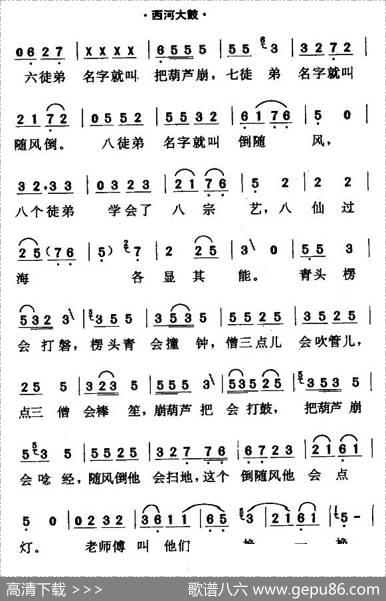 ·西河大鼓·
0 6 2 7 | X X X X | 6 5 5 5 | 5 5 6 3 | 3 2 7 2 |
六徒弟 名字就叫 把葫芦崩，七徒弟 名字就叫
2 1 7 2 | 0 5 5 2 | 5 5 3 2 | 6 1 7 6 | 5 0 |
随风倒。 八徒弟 名字就叫 倒随 风，
3 2·3 3 | 0 3 2 3 | 2 1 7 6 | 5 2 | 2 2 |
八个徒弟 学会了 八宗 艺，八 仙过
2 5 (7 6 | 5) 7 | 2 2 | 3 0 | 5 5 3 |
海 各 显其 能。 青头楞
5 3 2 3 | 3 5 5 | 3 5 3 5 | 5 5 2 5 | 3 5 2 5 |
会打磬，楞头青 会撞 钟，僧三点儿 会吹管儿，
2 5 5 | 3 2 3 5 | 5 3 5 5 | 5 3 5 2 5 | 5 3 5 5 |
点三 僧 会棒 笙，崩葫芦 把 会打鼓， 把葫芦 崩
5 3 5 | 5 5 2 5 | 3 2 7 7 6 | 6 7 2 3 | 2 1 6 1 |
会唸 经，随风倒他 会扫地，这个 倒随风他 会 点
5 0 | 0 2 3 2 | 3 6 1 1 | 6 5 3 | 2 1 6 1 | 5 - |
灯。 老师傅 叫 他们
高清下载 >>> 歌谱八六 www.gepu86.com